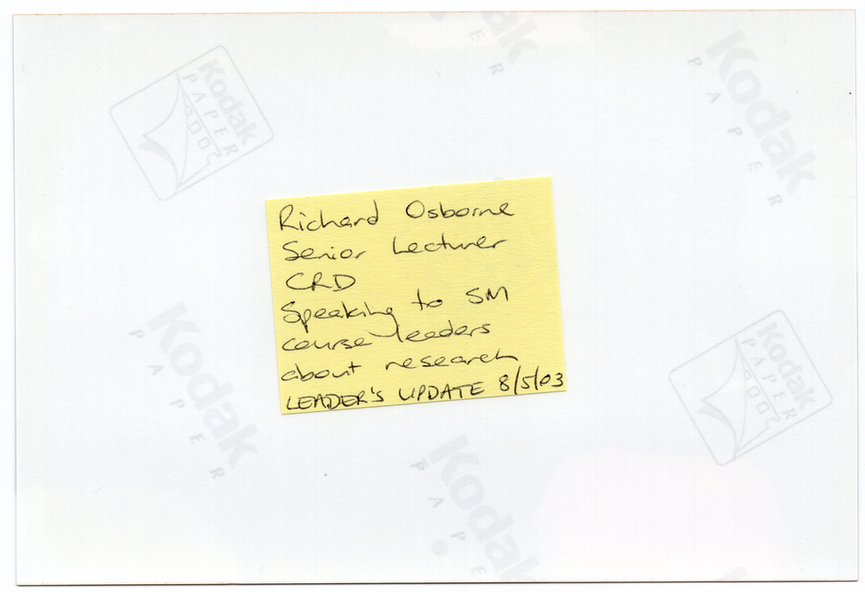 Kodak
PAPER
Kodak
PAPER
Kodak
PAPER
Richard Osborne
Senior Lecturer
CRD
Speaking to SM
course leaders
about research
LEADER'S UPDATE 8/5/03
Kodak
PAPER
Kodak
PAPER
Kodak
PAPER